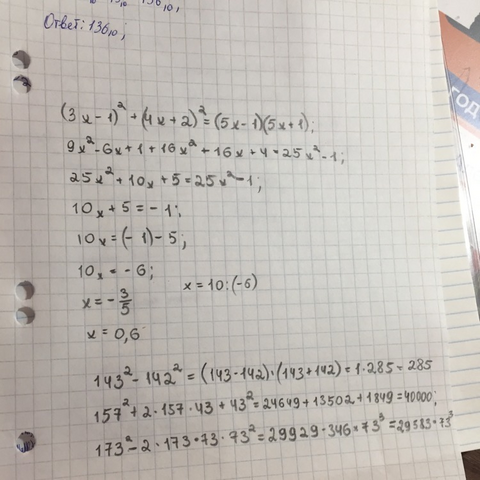 136₁₀,
Ответ: 136₁₀;
ГОД
(3x-1)²+(4x+2)²=(5x-1)(5x+1);
9x²-6x+1+16x²+16x+4=25x²-1;
25x²+10x+5=25x²-1;
10x+5=-1;
10x=(-1)-5;
10x=-6;
x=-3/5 x=10:(-6)
x=0,6
143²-142²=(143-142)·(143+142)=1·285=285
157²+2·157·43+43²=24649+13502+1849=40000;
173²-2·173·73·73²=29929-346×73³=29583·73³